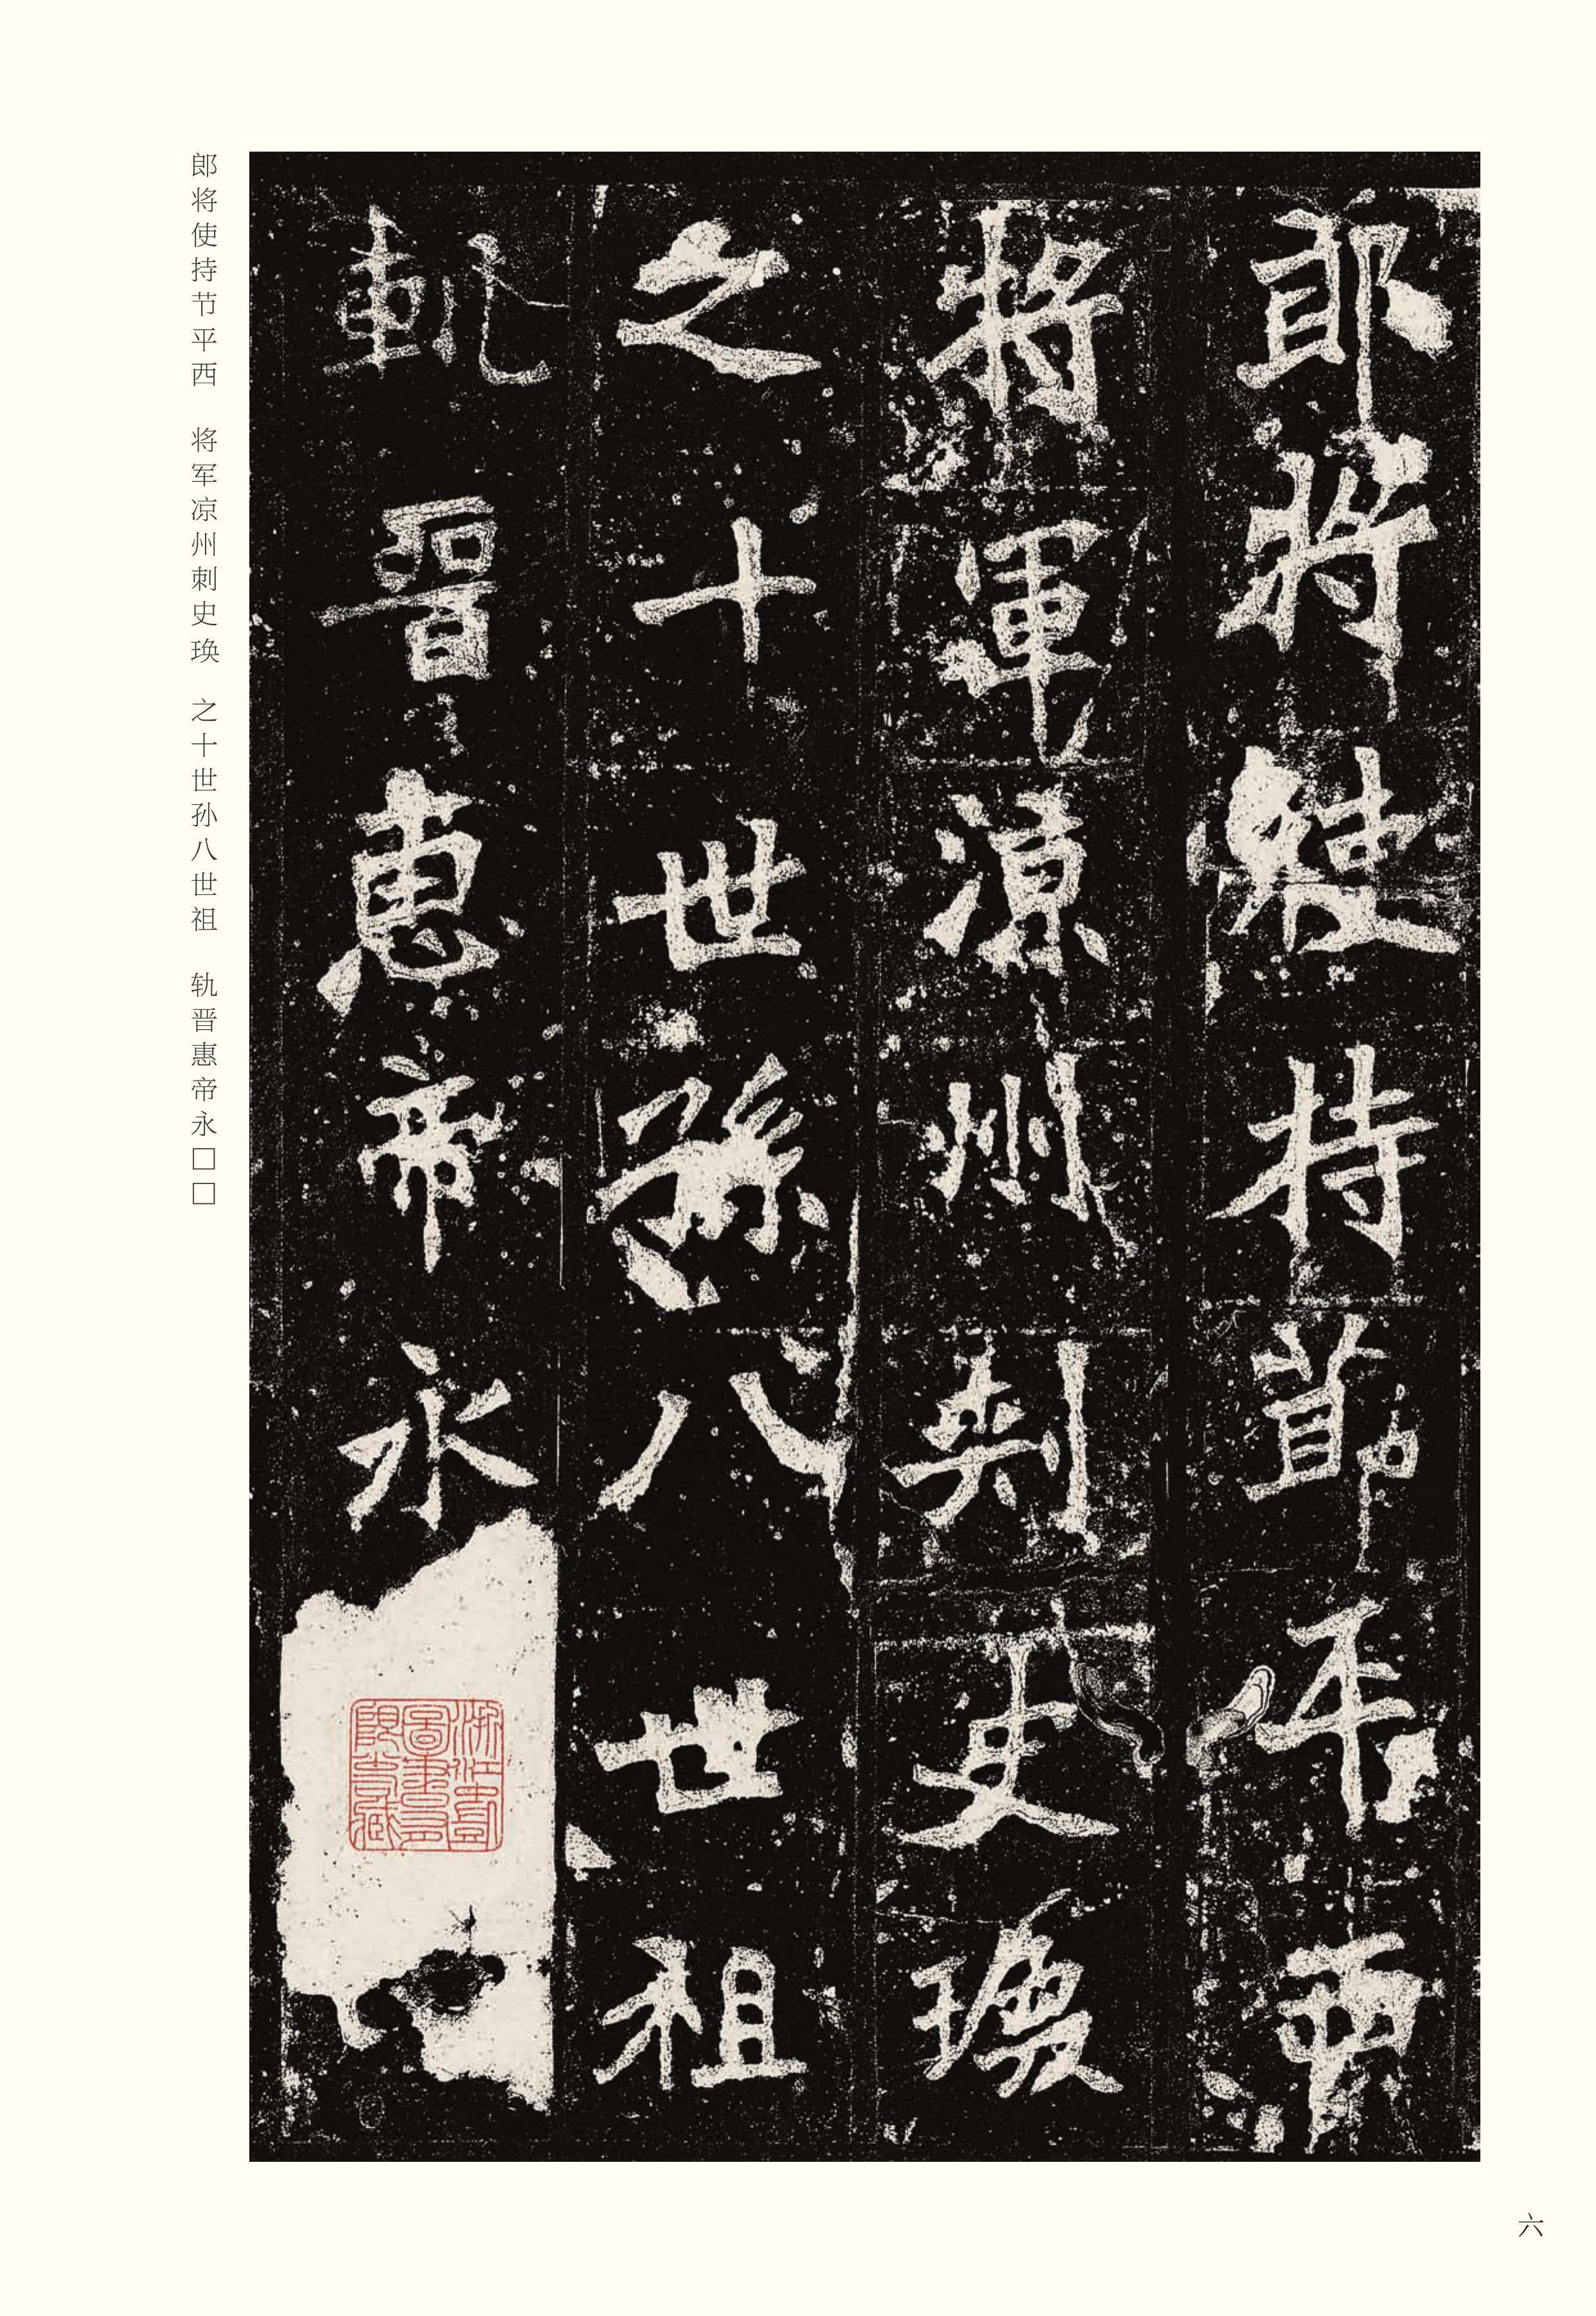 郎將使持節平西
將軍凉州刾史瑍
之十世孫八世祖
軌晉惠帝永
郎将使持节平西 将军凉州刺史瑍 之十世孙八世祖 轨晋惠帝永□□
六